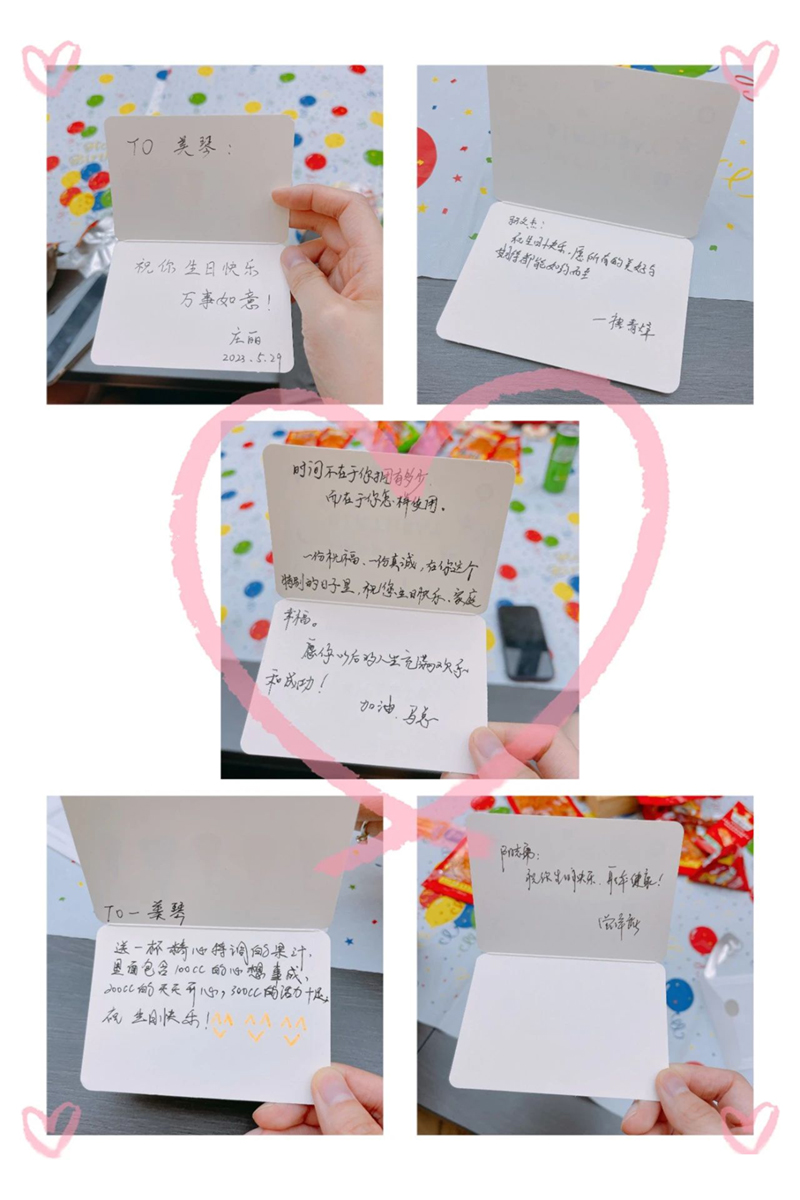 TO 美琴：
祝你生日快乐
万事如意！
庄丽
2023.5.29
祝生日快乐，愿所有的美好与
期待都能如约而至
时间不在于你拥有多少，
而在于你怎样使用。
一份祝福、一份真诚，在你这个
特别的日子里，祝您生日快乐、家庭
幸福。
愿你以后的人生充满欢乐
和成功！
加油
TO—美琴
送一杯精心特调的果汁，
里面包含100CC的心想事成，
200CC的天天开心，300CC的活力十足。
祝 生日快乐！
祝你生日快乐、身体健康！